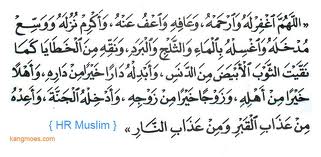 «اللَّهُمَّ اغْفِرْ لَهُ وَارْحَمْهُ، وَعَافِهِ وَاعْفُ عَنْهُ، وَأَكْرِمْ نُزُلَهُ وَوَسِّعْ
مُدْخَلَهُ وَاغْسِلْهُ بِالْمَاءِ وَالثَّلْجِ وَالْبَرَدِ، وَنَقِّهِ مِنَ الْخَطَايَا كَمَا
نَقَّيْتَ الثَّوْبَ الْأَبْيَضَ مِنَ الدَّنَسِ، وَأَبْدِلْهُ دَارًا خَيْرًا مِنْ دَارِهِ، وَأَهْلًا
خَيْرًا مِنْ أَهْلِهِ، وَزَوْجًا خَيْرًا مِنْ زَوْجِهِ، وَأَدْخِلْهُ الْجَنَّةَ، وَأَعِذْهُ
مِنْ عَذَابِ الْقَبْرِ وَمِنْ عَذَابِ النَّارِ» { HR Muslim }
kangmoes.com